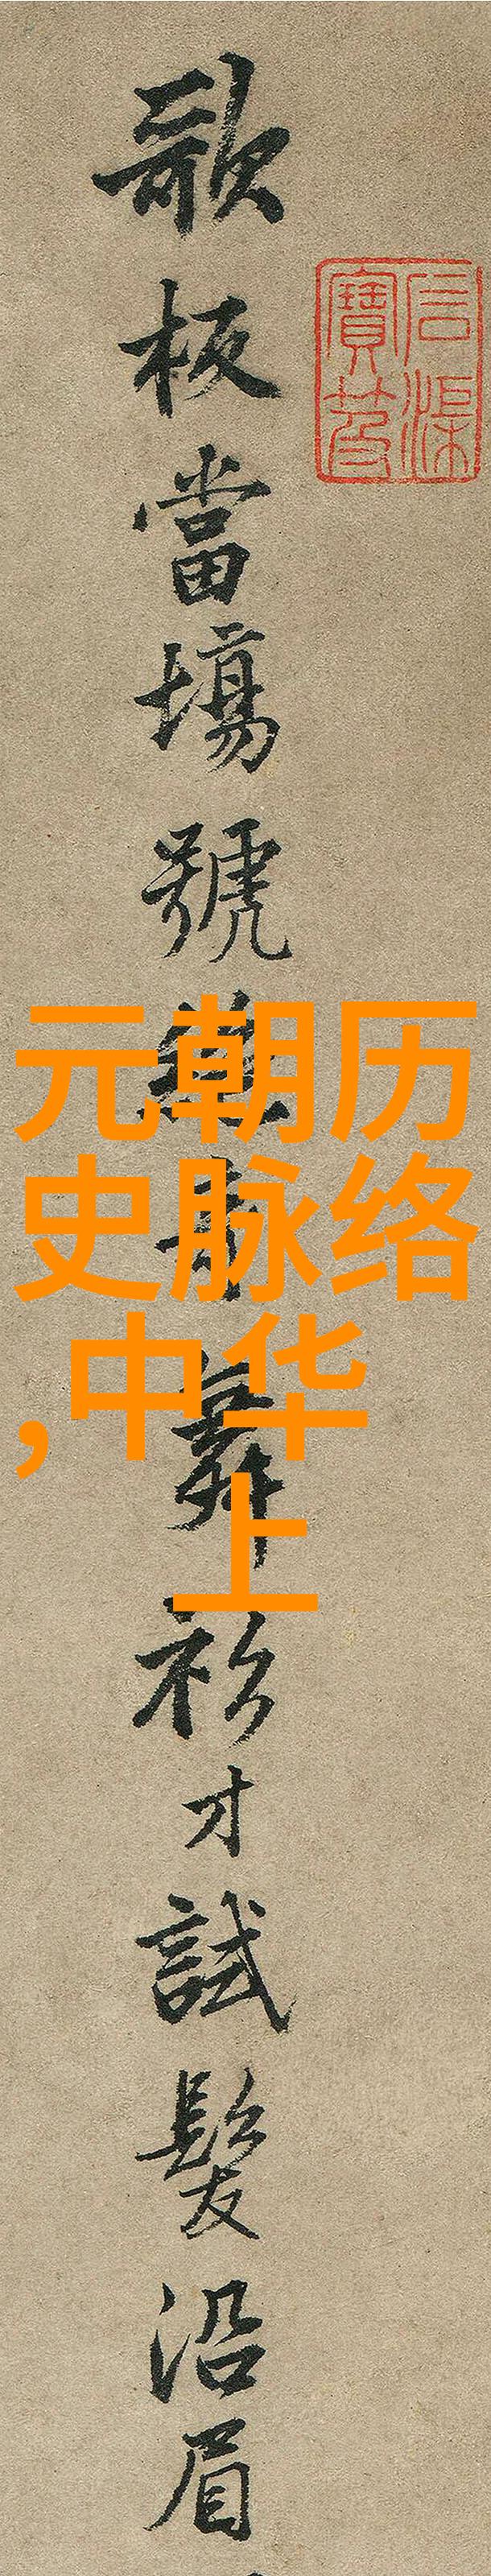 歌板當場號舞衫才試髮沿眉
石渠
寶笈
元朝历
史脉络
,中华
上